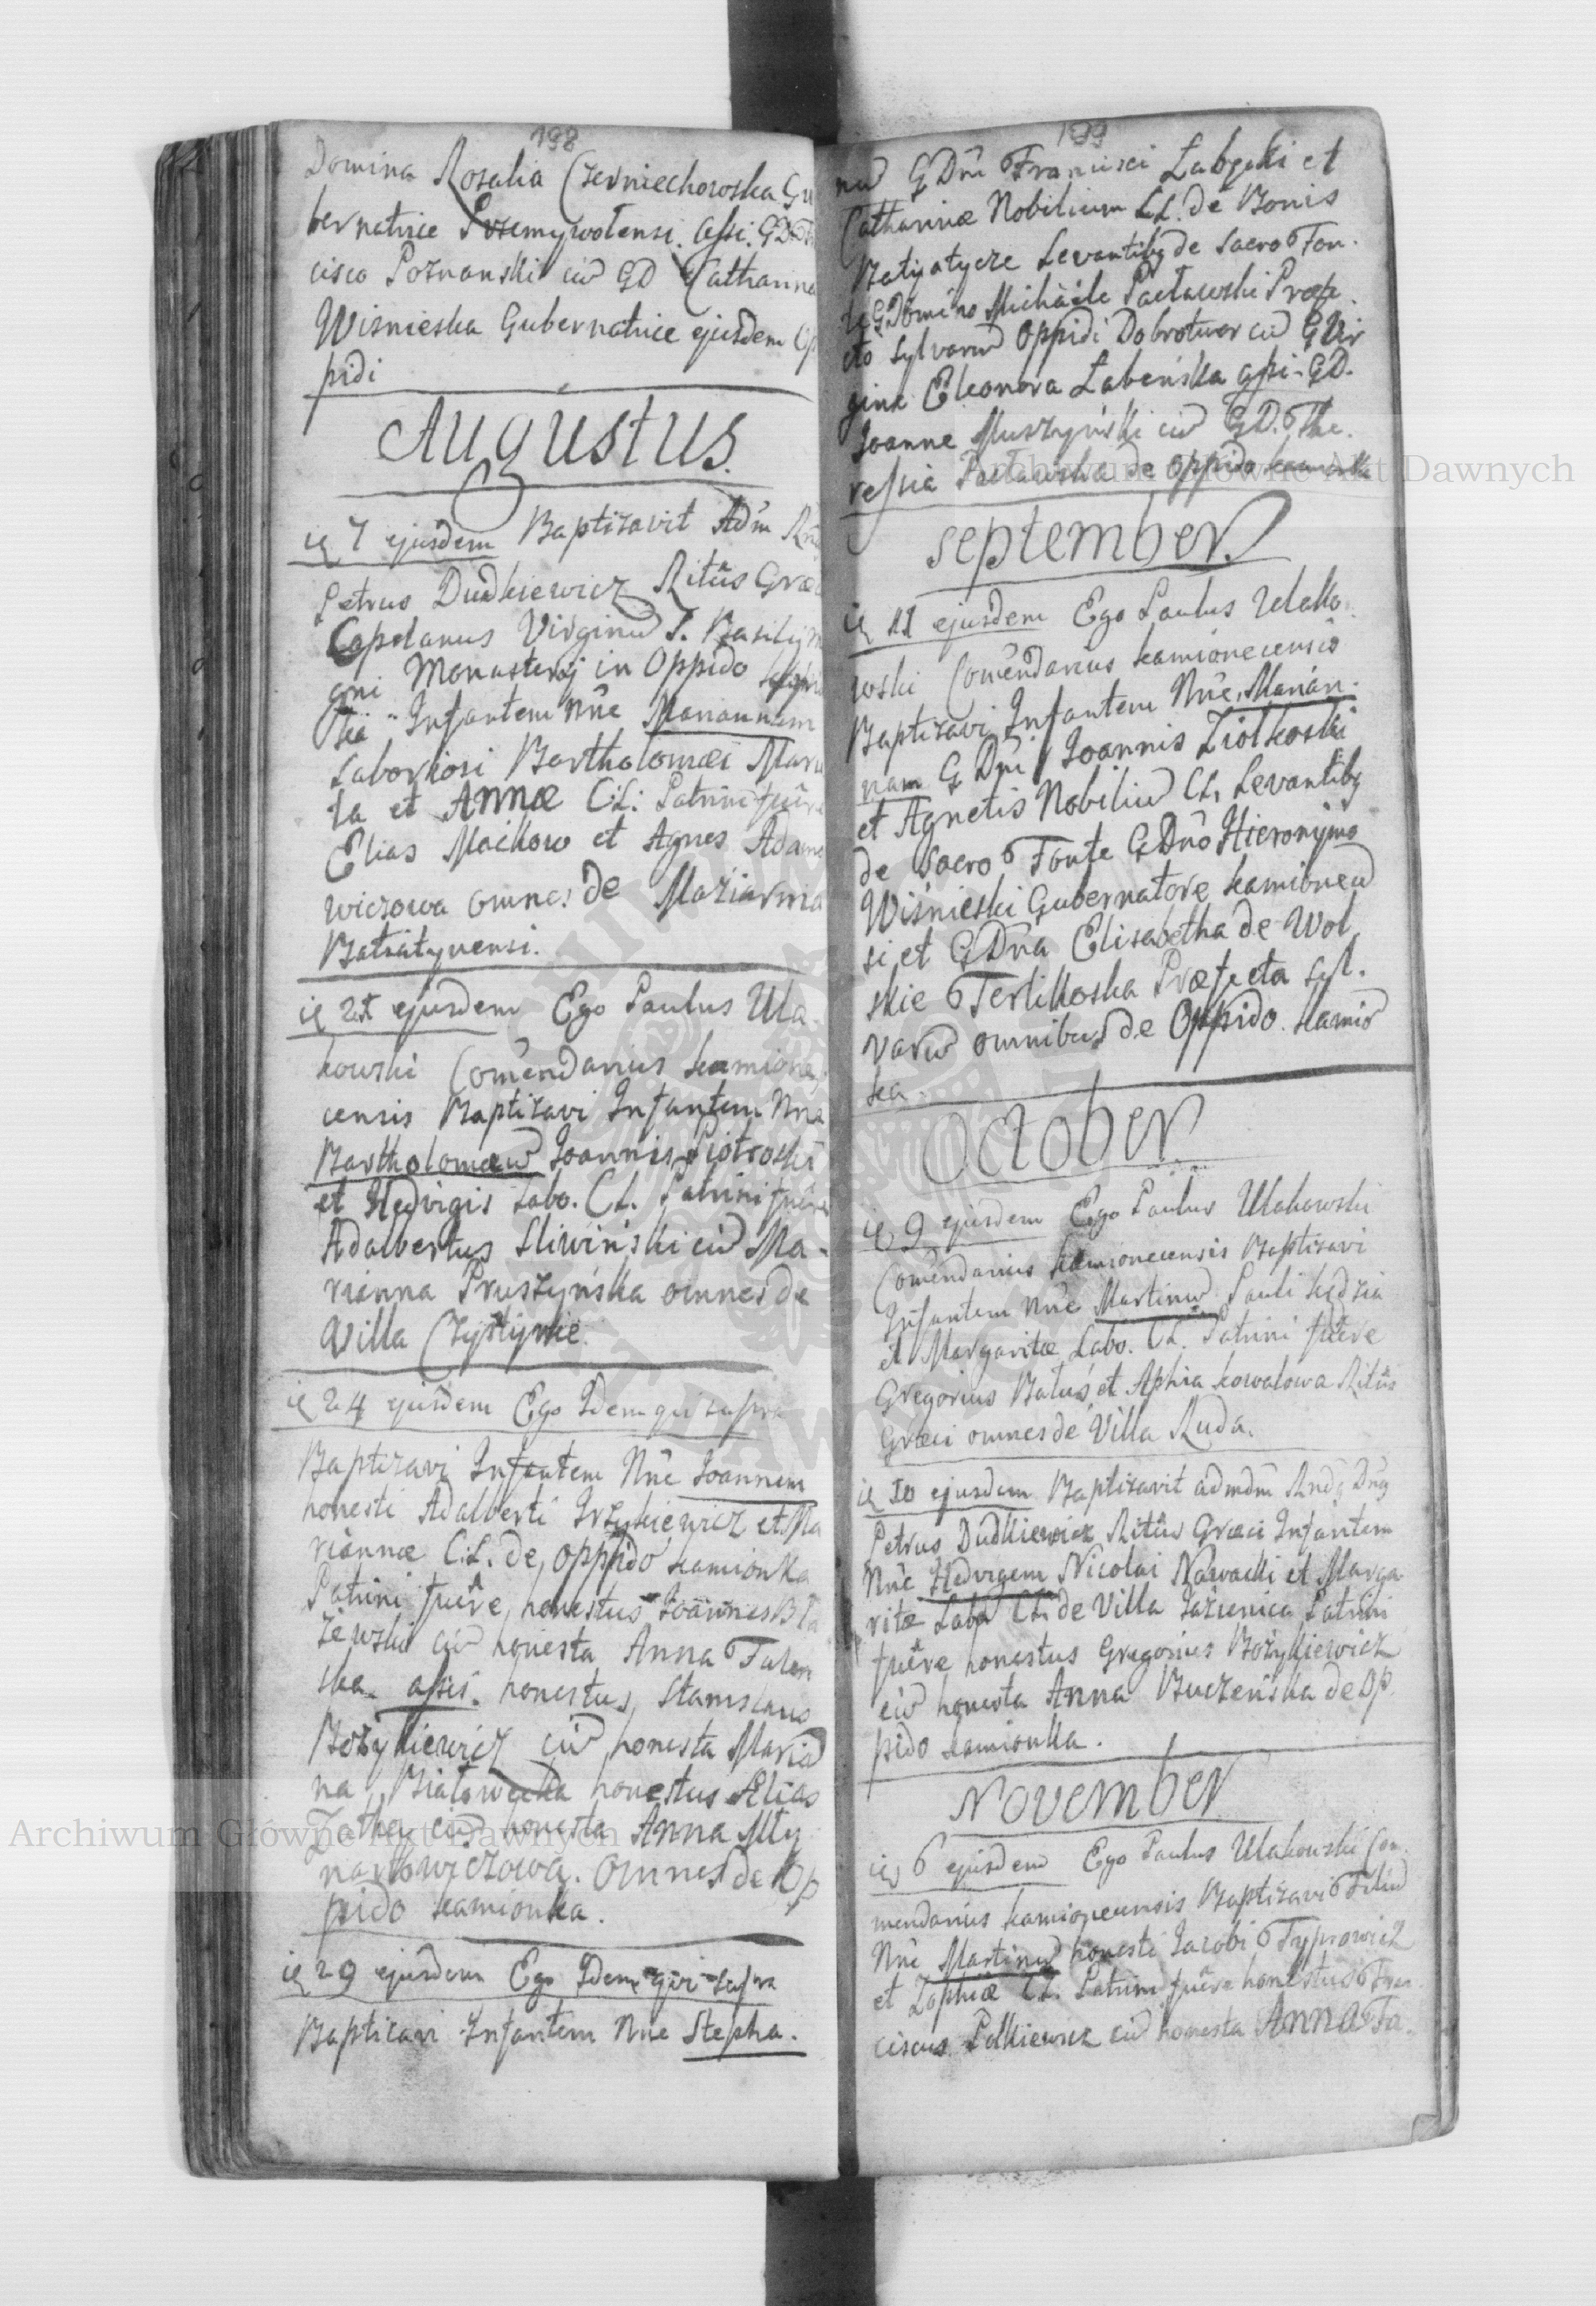 198
Domina Rosalia Czerniechowska Gu
bernatrice Przemywolensi. Assi. GD
cisco Poznanski cu͠ GD Catharina
Wisnieska Gubernatrice ejusdem Op
pidi
Augustus.
7 ejusdem Baptizavit Adm̃
Petrus Dudkiewicz Ritûs Græ
Capelanus Virginu͠ S. Basilij
Monasterij in Oppido
Infantem Nñe Mariannam
Laboriosi Bartholomæi
ta et Annæ C:L: Patrini fuêre
Elias Maćkow et Agnes Adamo
wiczowa omnes de Maziarnia
Batiatyvensi.
ejusdem Ego Paulus Ula
kowski Com̃endarius Kamione
censis Baptizavi Infantem Nñe
Bartholomæu͠ Joannis Piotroski
et Hedvigis Labo. CL. Patrini fuêre
Adalbertus Sliwiński cu͠ Ma-
rianna Pruszyńska omnes de
Villa Czystynie.
24 ejusdem Ego Idem qui supra
Baptizavi Infantem Nñe Joannem
honesti Adalberti et Ma
riannæ C:L. de Oppido Kamionka
Patrini fuêre honestus Joannes Bła
żewski cu͠ honesta Anna
ska. assis. honestus Stanislaus
Bożykiewicz cu͠ honesta Maria
na Białowecka honestus Elias
cu͠ honesta Anna Mły
narkowiczowa. Omnes de Op
pido Kamionka.
29 ejusdem Ego Idem qui supra
Baptizavi Infantem Nñe Stepha.
199
nu͠ G Dñi Francisci Łabęcki et
Catharinæ Nobilium CL. de Bonis
Batyatycze Levantibq de Sacro Fon.
te G Domino Michaële Pacławski Præfe.
cto Sylvaru͠ Oppidi Dobrotwor cu͠ G Vir
gine Eleonora Łabeńska assi. GD.
Joanne Muszyński cu͠ GD. The.
ressia Pacławska de Oppido Kamionka
September.
11 ejusdem Ego Paulus Ulako.
wski Com̃endarius Kamionecensis
Baptizavi Infantem Nñe. Marian.
nam G Dñi Joannis Ziołkoski
et Agnetis Nobiliu͠ CL. Levantibq
de Sacro Fonte G Dño Hieronijmo
Wiśnieski Gubernatore Kamionen
si et G Dña Elisabetha de Wol
skie Terlikoska Præfecta Syl.
varu͠ omnibus de Oppido. Kamio
ka.
October
9 ejusdem Ego Paulus Ulakowski
Com̃endarius Kamionecensis Baptizavi
Infantem Nñe Martinu͠ Pauli Kędzia
et Margaritæ Labo. CL. Patrini fuêre
Gregorius Batuś et Aphia Kowalowa Ritûs
Græci omnes de Villa Ruda.
10 ejusdem Baptizavit admdm̃ Rndq Dnq
Petrus Dudkiewicz Ritûs Græci Infantem
Nñe Hedvigem Nicolai Nawaćki et Marga
ritæ Labo CL. de Villa Jazienica Patrini
fuêre honestus Gregorius Bożykiewicz
cu͠ honesta Anna Buczeńska de Op.
pido Kamionka.
November
6 ejusdem Ego Paulus Ulakowski Com.
mendarius Kamionecensis Baptizavi Filiu͠
Nñe Martinu͠ honesti Jacobi Typrowicz
et Zophiæ CL. Patrini fuêre honestus Fran
ciscus Pelkiewicz cu͠ honesta Anna Fa.
Archiwum Główne Akt Dawnych
Archiwum Główne Akt Dawnych